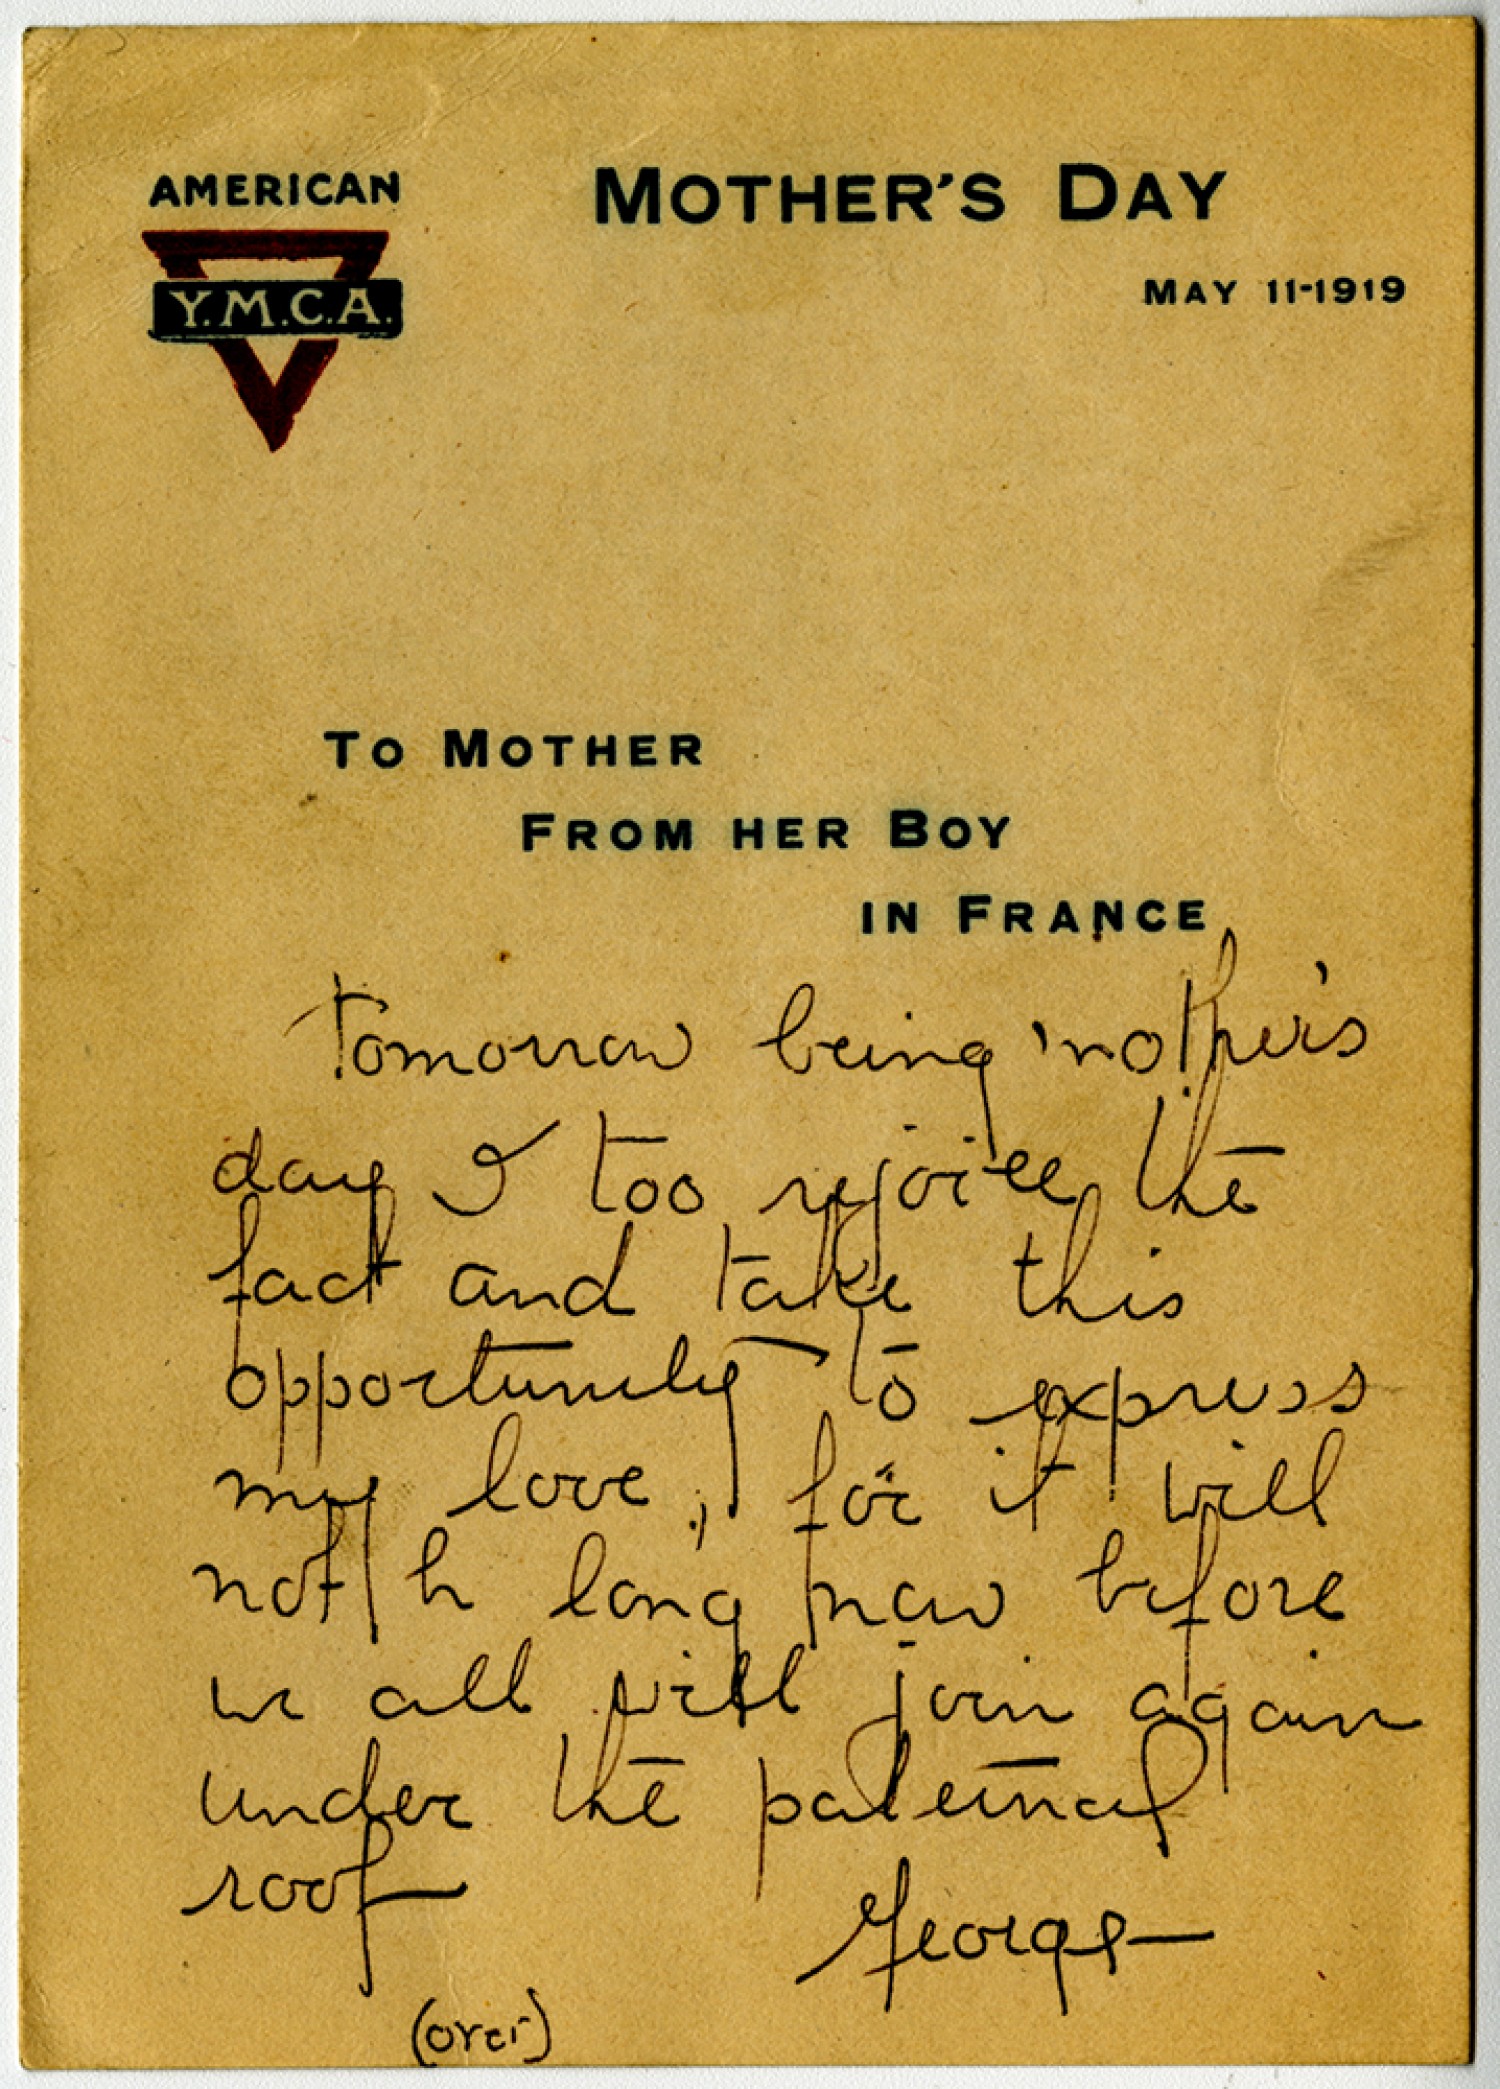 AMERICAN
Y.M.C.A.
MOTHER'S DAY
MAY 11-1919
TO MOTHER
FROM HER BOY
IN FRANCE
Tomorrow being mother's
day I too rejoice the
fact and take this
opportunity to express
my love, for it will
not b long now before
we all will join again
under the paternal
roof
George
(over)